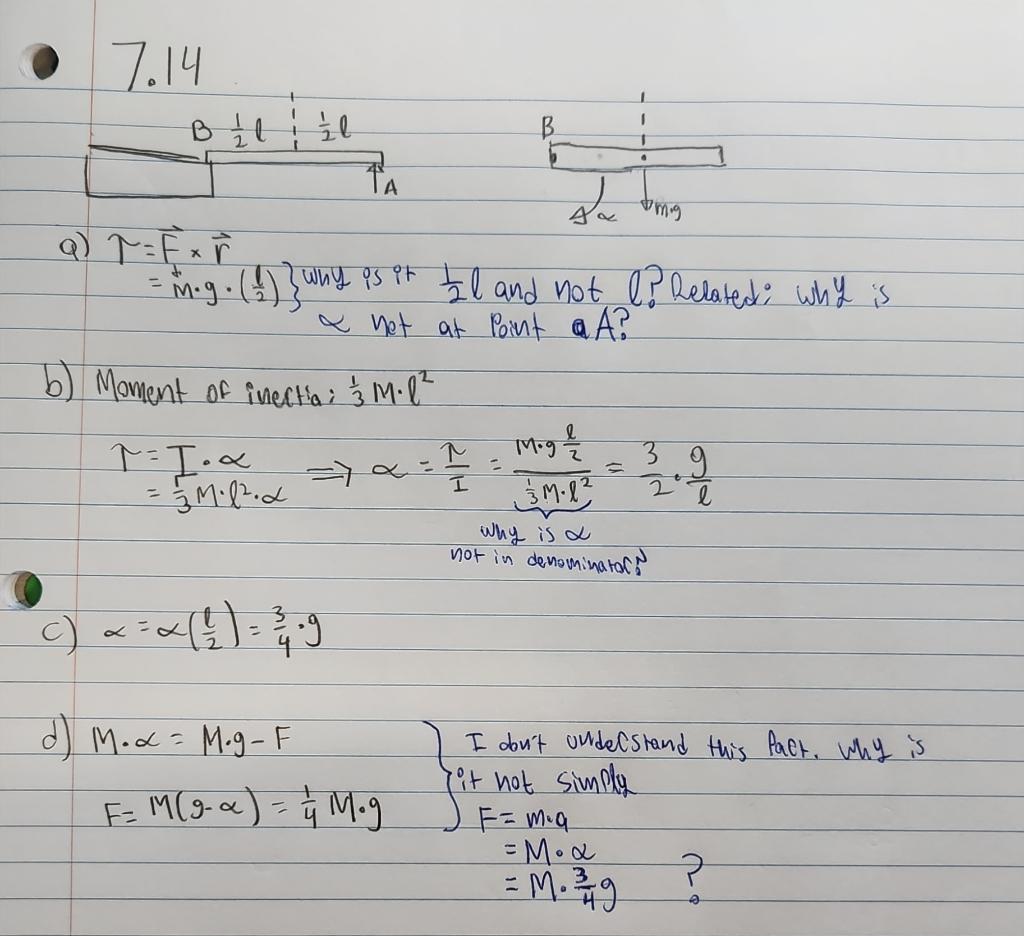 7.14
B ½l ½l
A
B
A α m·g
a) τ = F⃗ × r⃗
= M·g·(l/2) } why is it ½l and not l? Related: why is
α not at Point A?
b) Moment of inertia: ⅓ M·l²
τ = I·α ⟹ α = τ/I = (M·g l/2)/(⅓ M·l²) = 3/2 · g/l
= ⅓ M·l²·α
why is α
not in denominator?
c) α = α(l/2) = ¾·g
d) M·α = M·g - F } I don't understand this part. Why is
it not simply
F = M(g-α) = ¼ M·g
F = m·a
= M·α
= M·¾g ?